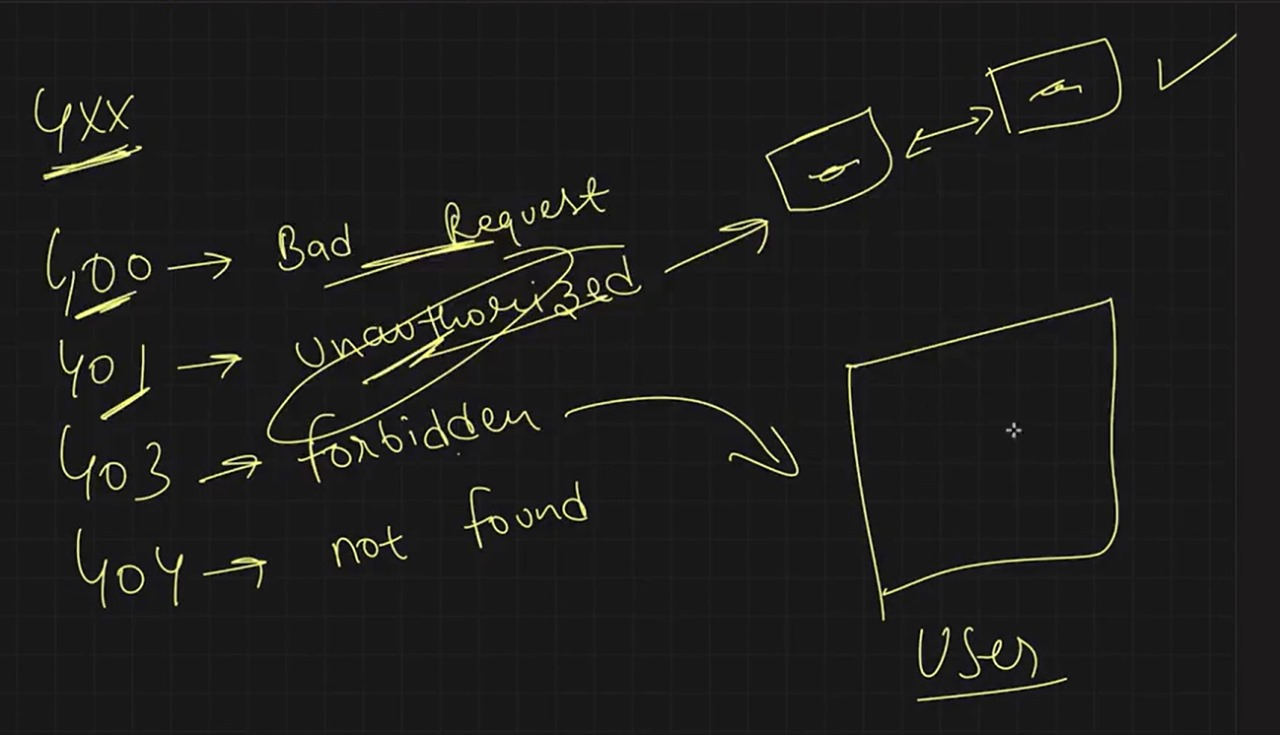 4XX
400 → Bad Request
401 → Unauthorized
403 → forbidden
404 → not found
User